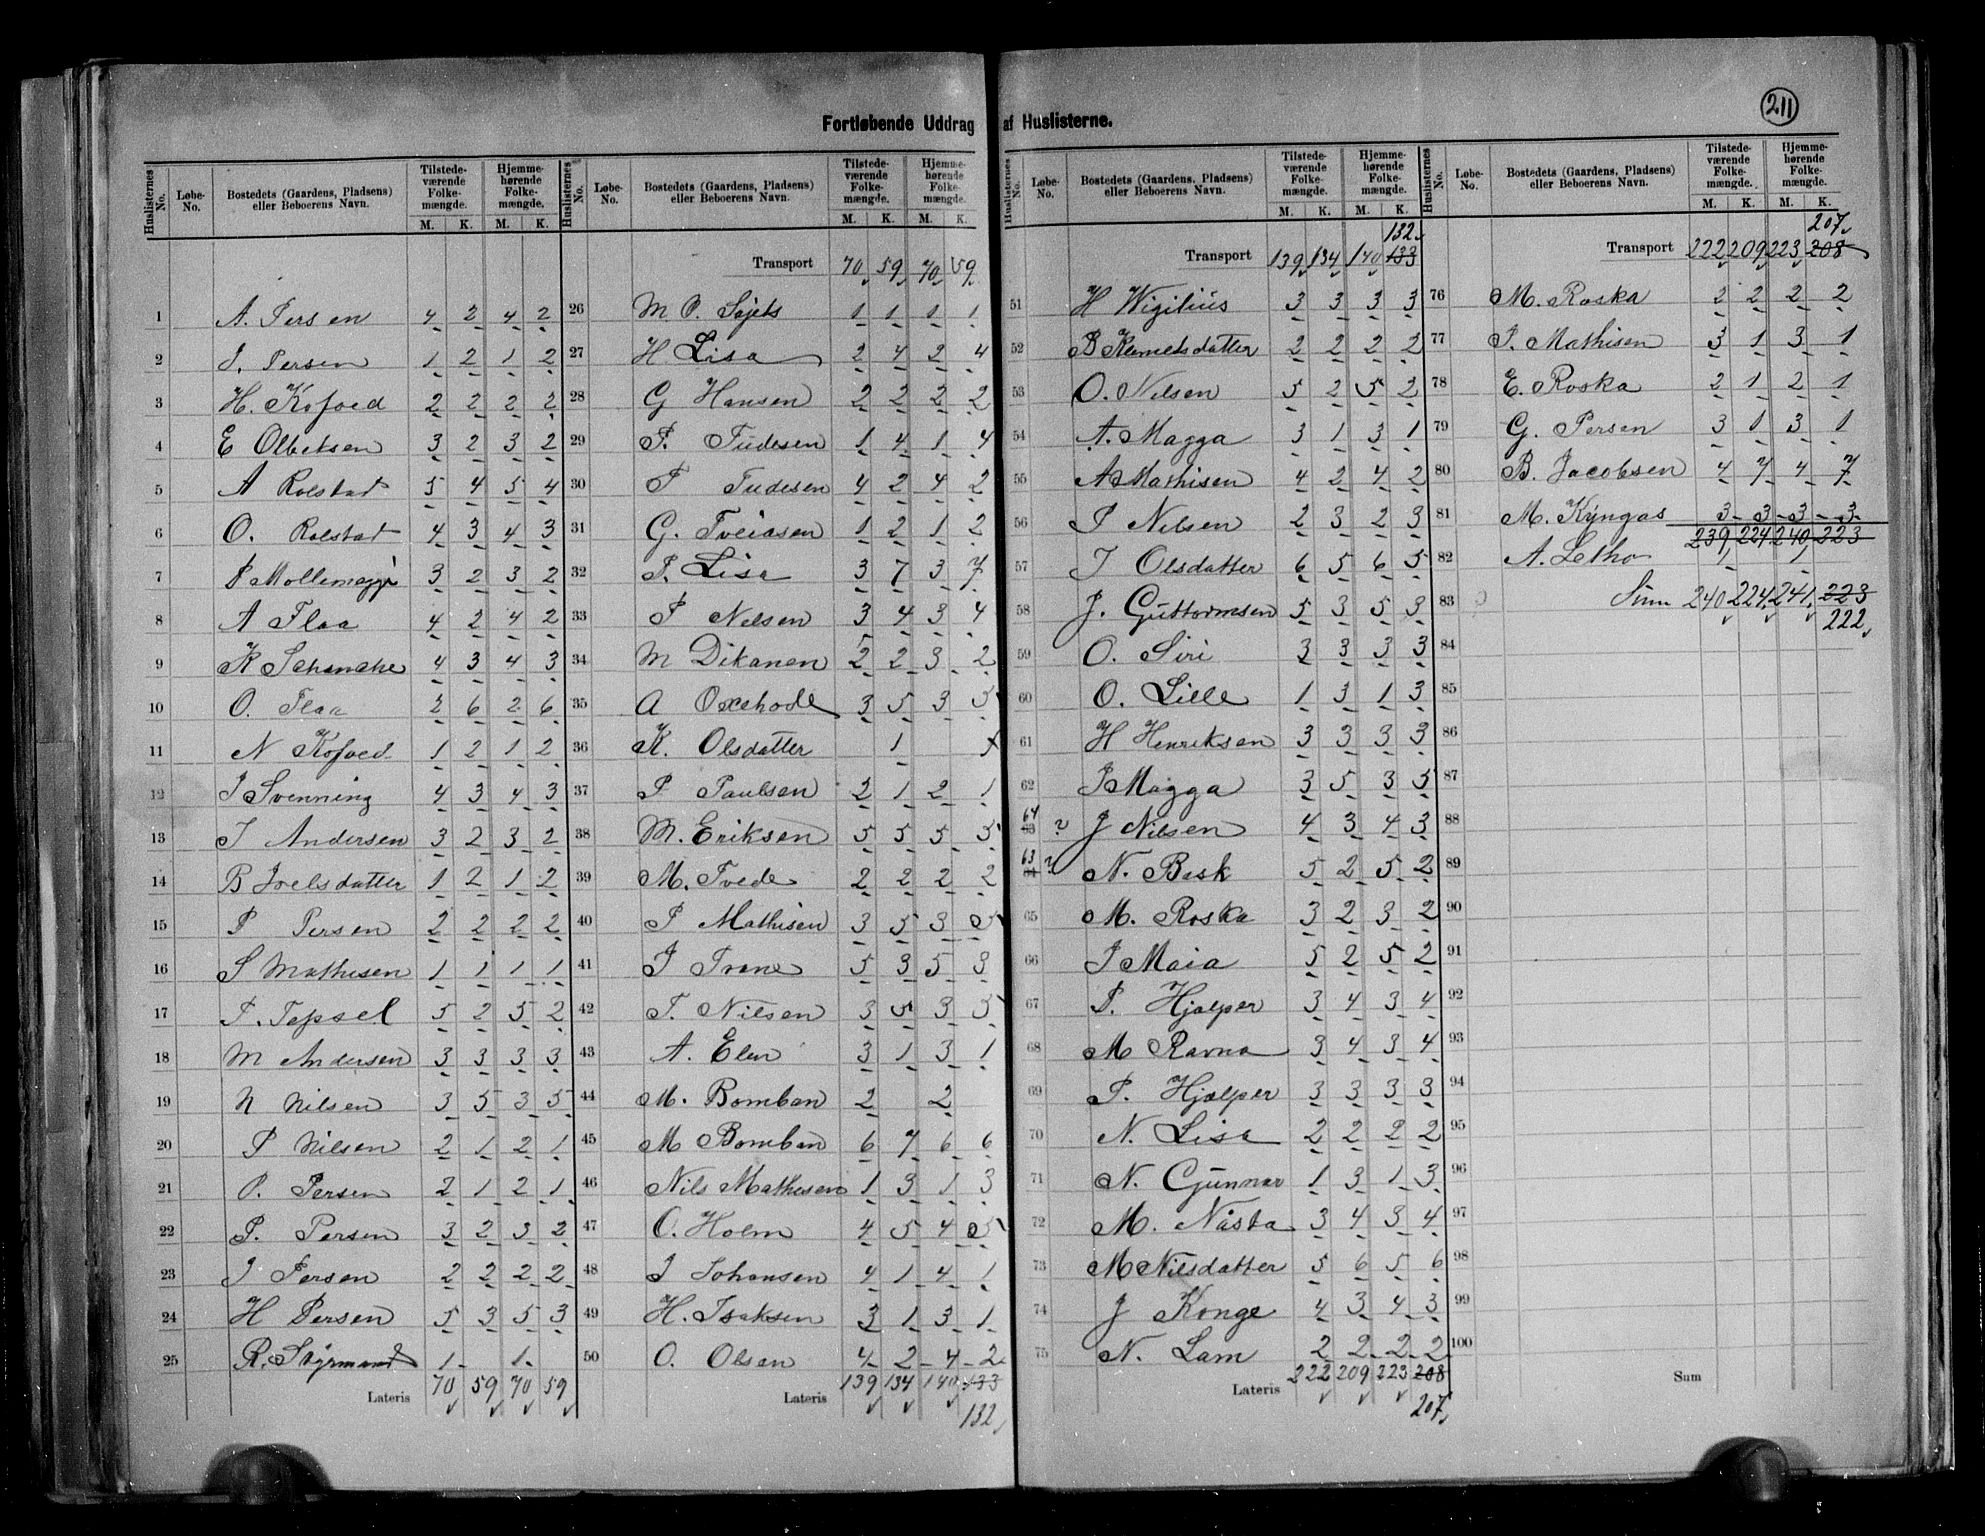 211
Fortløbende Uddrag af Huslisterne.
Huslisternes No. Løbe-No. Bostedets (Gaardens, Pladsens) eller Beboerens Navn. Tilstedeværende Folkemængde. M. K. Hjemmehørende Folkemængde. M. K.
1 A. Persen 4 2 4 2
2 J. Persen 1 2 1 2
3 H. Kofoed 2 2 2 2
4 E Olbetsen 3 2 3 2
5 A Rolstad 5 4 5 4
6 O. Rolstad 4 3 4 3
7 3 2 3 2
8 A Flaa 4 2 4 2
9 K Schanche 4 3 4 3
10 O. Flaa 2 6 2 6
11 N Kofoed 1 2 1 2
12 J Svenning 4 3 4 3
13 J Andersen 3 2 3 2
14 B Joelsdatter 1 2 1 2
15 P Persen 2 2 2 2
16 S Mathisen 1 1 1 1
17 P. 5 2 5 2
18 M Andersen 3 3 3 3
19 N Nilsen 3 5 3 5
20 P Nilsen 2 1 2 1
21 O. Persen 2 1 2 1
22 P. Persen 3 2 3 2
23 J Persen 2 2 2 2
24 H Persen 5 3 5 3
25 R. Styrmand 1 1
Lateris 70 59 70 59
Huslisternes No. Løbe-No. Bostedets (Gaardens, Pladsens) eller Beboerens Navn. Tilstedeværende Folkemængde. M. K. Hjemmehørende Folkemængde. M. K.
Transport 70 59 70 59
26 M P. 1 1 1 1
27 H Lisa 2 4 2 4
28 G Hansen 2 2 2 2
29 P. Tudesen 1 4 1 4
30 P Tudesen 4 2 4 2
31 G. 1 2 1 2
32 P. Lisa 3 7 3 7
33 P Nilsen 3 4 3 4
34 M Dikanen 2 2 3 2
35 A Oxehode 3 5 3 5
36 K. Olsdatter 1 1
37 P Paulsen 2 1 2 1
38 M. Eriksen 5 5 5 5
39 M. Tvede 2 2 2 2
40 P Mathisen 3 5 3 5
41 J Trane 5 3 5 3
42 P. Nilsen 3 5 3 5
43 A. Elen 3 1 3 1
44 M. Bomban 2 2
45 M Bomban 6 7 6 6
46 Nils Mathisen 1 3 1 3
47 O. Holm 4 5 4 5
48 J Johansen 4 1 4 1
49 H. Isaksen 3 1 3 1
50 O. Olsen 4 2 4 2
Lateris 139 134 140 133
132
Huslisternes No. Løbe-No. Bostedets (Gaardens, Pladsens) eller Beboerens Navn. Tilstedeværende Folkemængde. M. K. Hjemmehørende Folkemængde. M. K.
132
Transport 139 134 140 133
51 H Wigilius 3 3 3 3
52 B Klemetsdatter 2 2 2 2
53 O. Nilsen 5 2 5 2
54 A. Magga 3 1 3 1
55 A Mathisen 4 2 4 2
56 P Nilsen 2 3 2 3
57 I Olsdatter 6 5 6 5
58 J. Guttormsen 5 3 5 3
59 O. Siri 3 3 3 3
60 O. Lille 1 3 1 3
61 H Henriksen 3 3 3 3
62 P Magga 3 5 3 5
64 63 ? J Nilsen 4 3 4 3
63 64 ? N. Bask 5 2 5 2
65 M. Roska 3 2 3 2
66 J Maia 5 2 5 2
67 P. Hjælper 3 4 3 4
68 M Ravna 3 4 3 4
69 P. Hjælper 3 3 3 3
70 N. Lisa 2 2 2 2
71 N. Gunnar 1 3 1 3
72 M. Nasta 3 4 3 4
73 M Nilsdatter 5 6 5 6
74 J Konge 4 3 4 3
75 N. Lam 2 2 2 2
Lateris 222 209 223 208
207
Huslisternes No. Løbe-No. Bostedets (Gaardens, Pladsens) eller Beboerens Navn. Tilstedeværende Folkemængde. M. K. Hjemmehørende Folkemængde. M. K.
207
Transport 222 209 223 208
76 M. Roska 2 2 2 2
77 P. Mathisen 3 1 3 1
78 E. Roska 2 1 2 1
79 G. Persen 3 1 3 1
80 B. Jacobsen 4 7 4 7
81 M. Kyngas 3 3 3 3
239 224 240 223
82 A. Letho 1 1
83 Sum 240 224 241 223
222
84
85
86
87
88
89
90
91
92
93
94
95
96
97
98
99
100
Sum